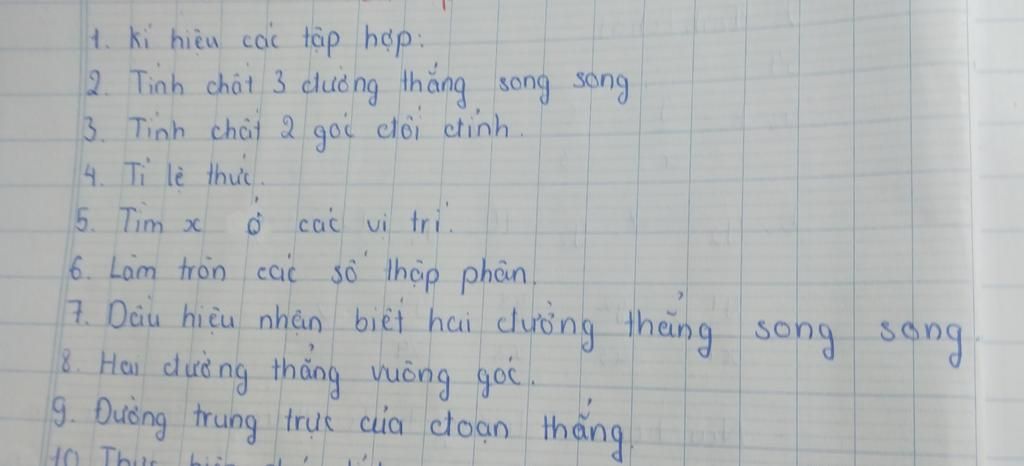 1. Kí hiệu các tập hợp:
2. Tính chất 3 đường thẳng song song
3. Tính chất 2 góc đối đỉnh.
4. Tỉ lệ thức.
5. Tìm x ở các vị trí.
6. Làm tròn các số thập phân.
7. Dấu hiệu nhận biết hai đường thẳng song song.
8. Hai đường thẳng vuông góc.
9. Đường trung trực của đoạn thẳng.
10